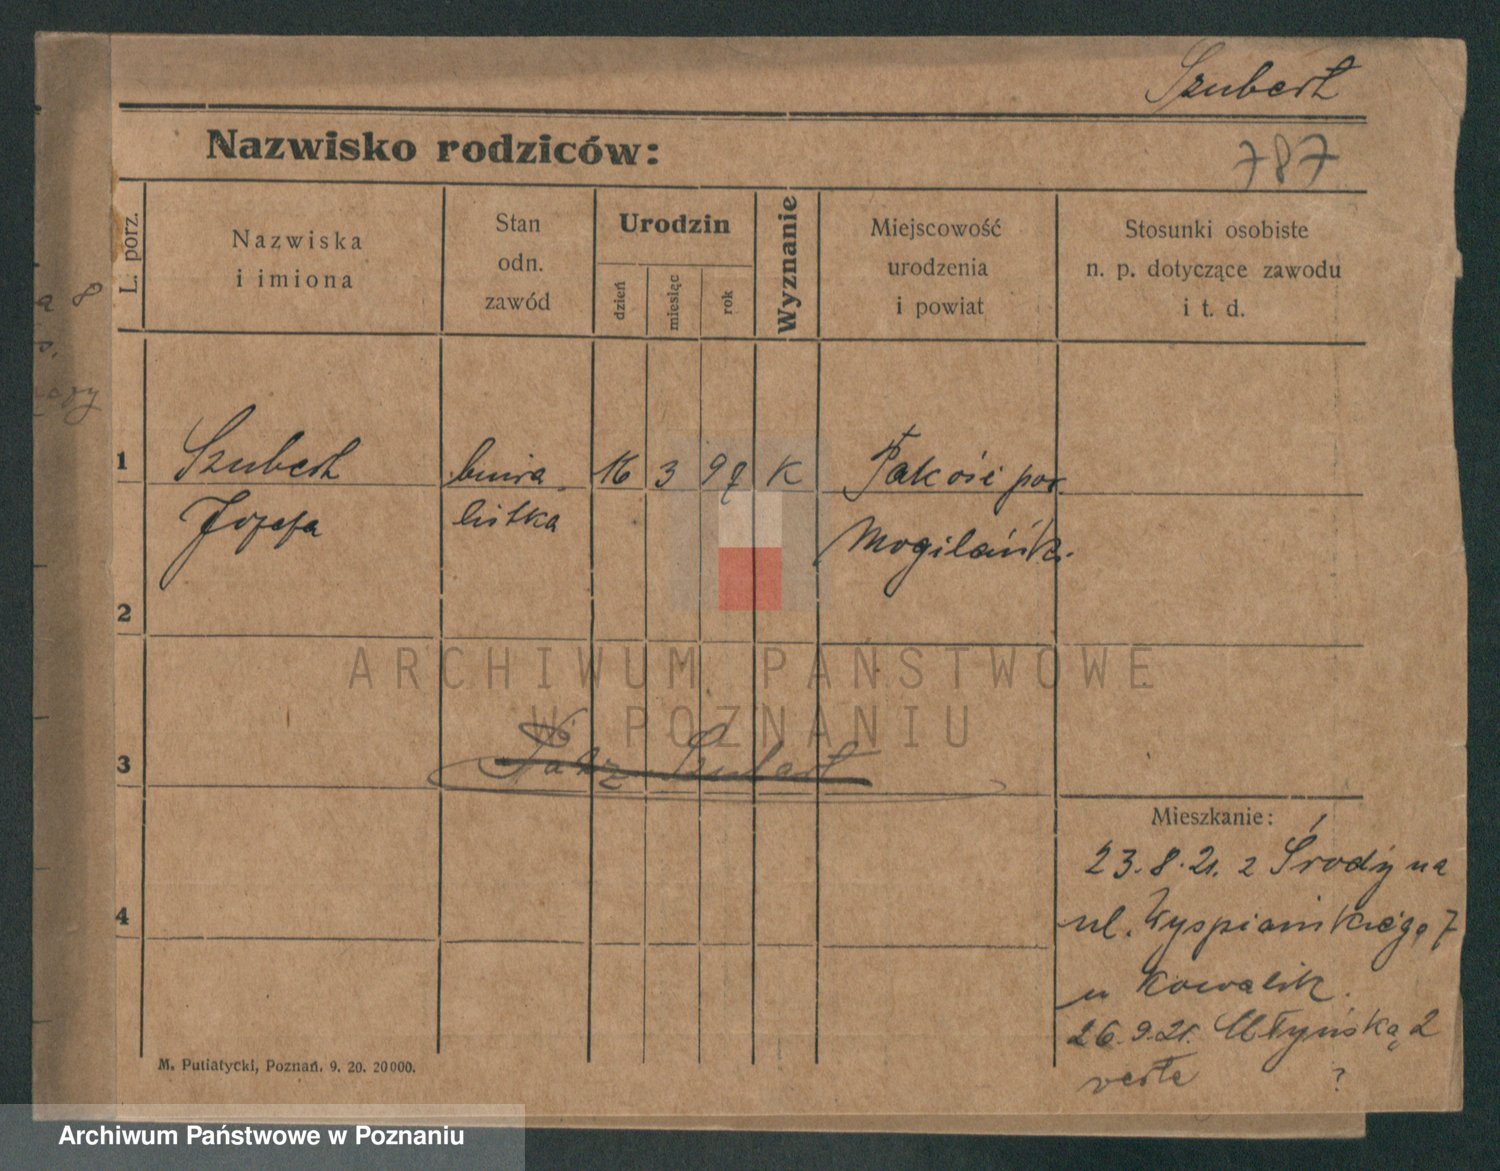 Szubert
Nazwisko rodziców:
787
L. porz.
Nazwiska
i imiona
Stan
odn.
zawód
Urodzin
dzień
miesięc
rok
Wyznanie
Miejscowość
urodzenia
i powiat
Stosunki osobiste
n. p. dotyczące zawodu
i t. d.
a 8
1 Szubert biura- 16 3 97 K Pakość pow.
Józefa listka Mogilański.
2
ARCHIWUM PAŃSTWOWE
W POZNANIU
3 Szubert
Mieszkanie:
23.8.21. z Środy na
4 ul. Wyspiańskiego 7
u Kowalik.
26.9.21. Młyńską 2
?
M. Putiatycki, Poznań. 9. 20. 20000.
Archiwum Państwowe w Poznaniu